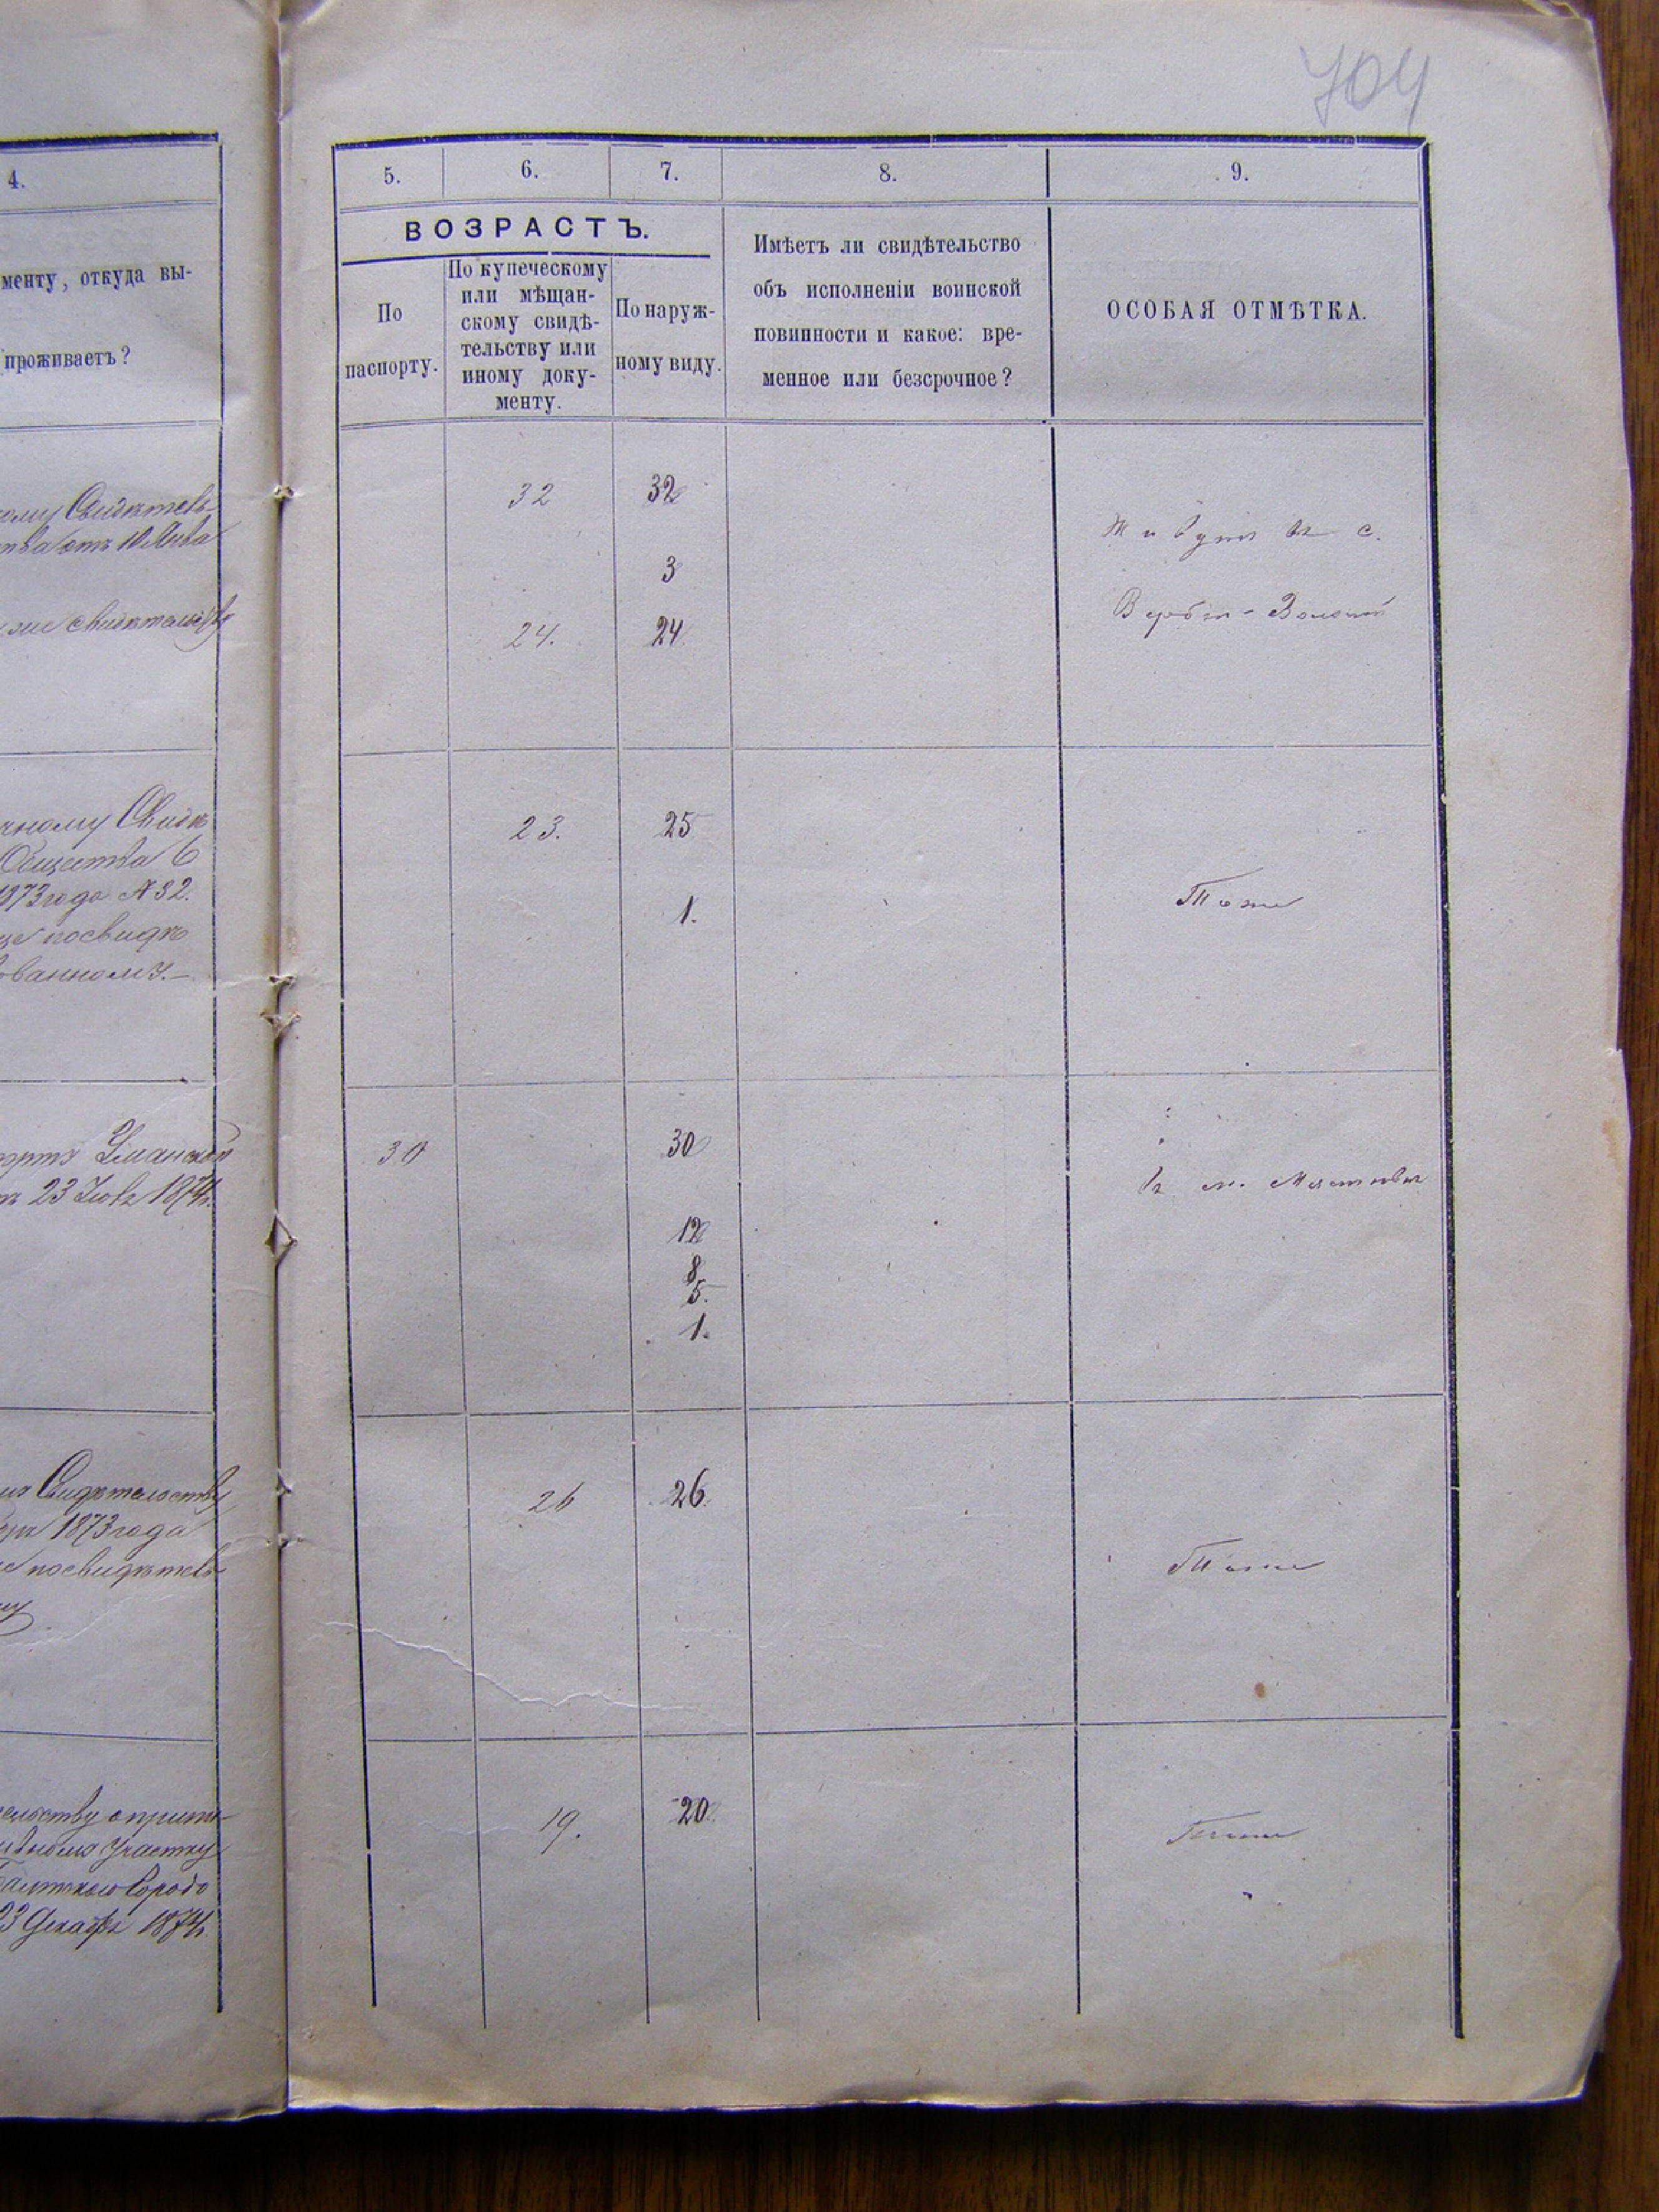 704
4.
менту, откуда вы-
проживаетъ?
ому Свидѣтель-
тва отъ 10 Янва
же свидѣтельств
чному Свидѣ
Общества 6
1873 года № 32.
посвидѣ
ованному.—
Уманской
23 Іюля 1874 г.
Свидѣтельству
1873 года
посвидѣтель
ельству о припи-
участку
Городо
23 Декабр 1874 г.
5. 6. 7. 8. 9.
ВОЗРАСТЪ.
По
паспорту.
По купеческому
или мѣщан-
скому свидѣ-
тельству или
иному доку-
менту.
По наруж-
ному виду.
Имѣетъ ли свидѣтельство
объ исполненіи воинской
повинности и какое: вре-
менное или безсрочное?
ОСОБАЯ ОТМѢТКА.
32 32
Живутъ въ с.
3
24. 24
23. 25
Тоже
1.
30 30
въ м.
12
8
5.
1.
26 26.
Тоже
19. 20
Тоже